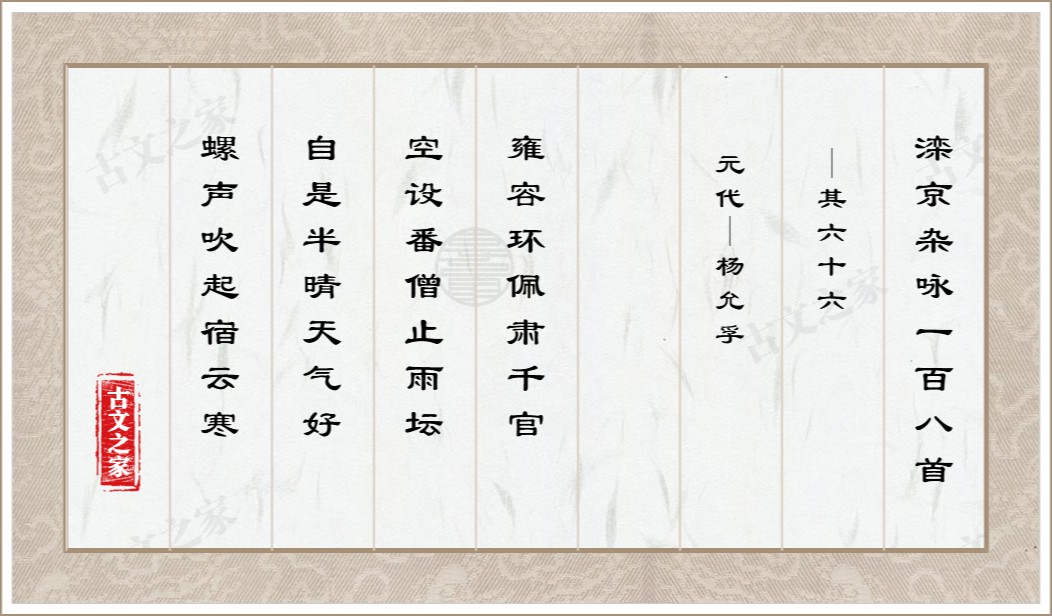 滦京杂咏一百八首
—其六十六
元代—杨允孚
雍容环佩肃千官
空设番僧止雨坛
自是半晴天气好
螺声吹起宿云寒
古文之家
古文之家
古文之家
古文之家